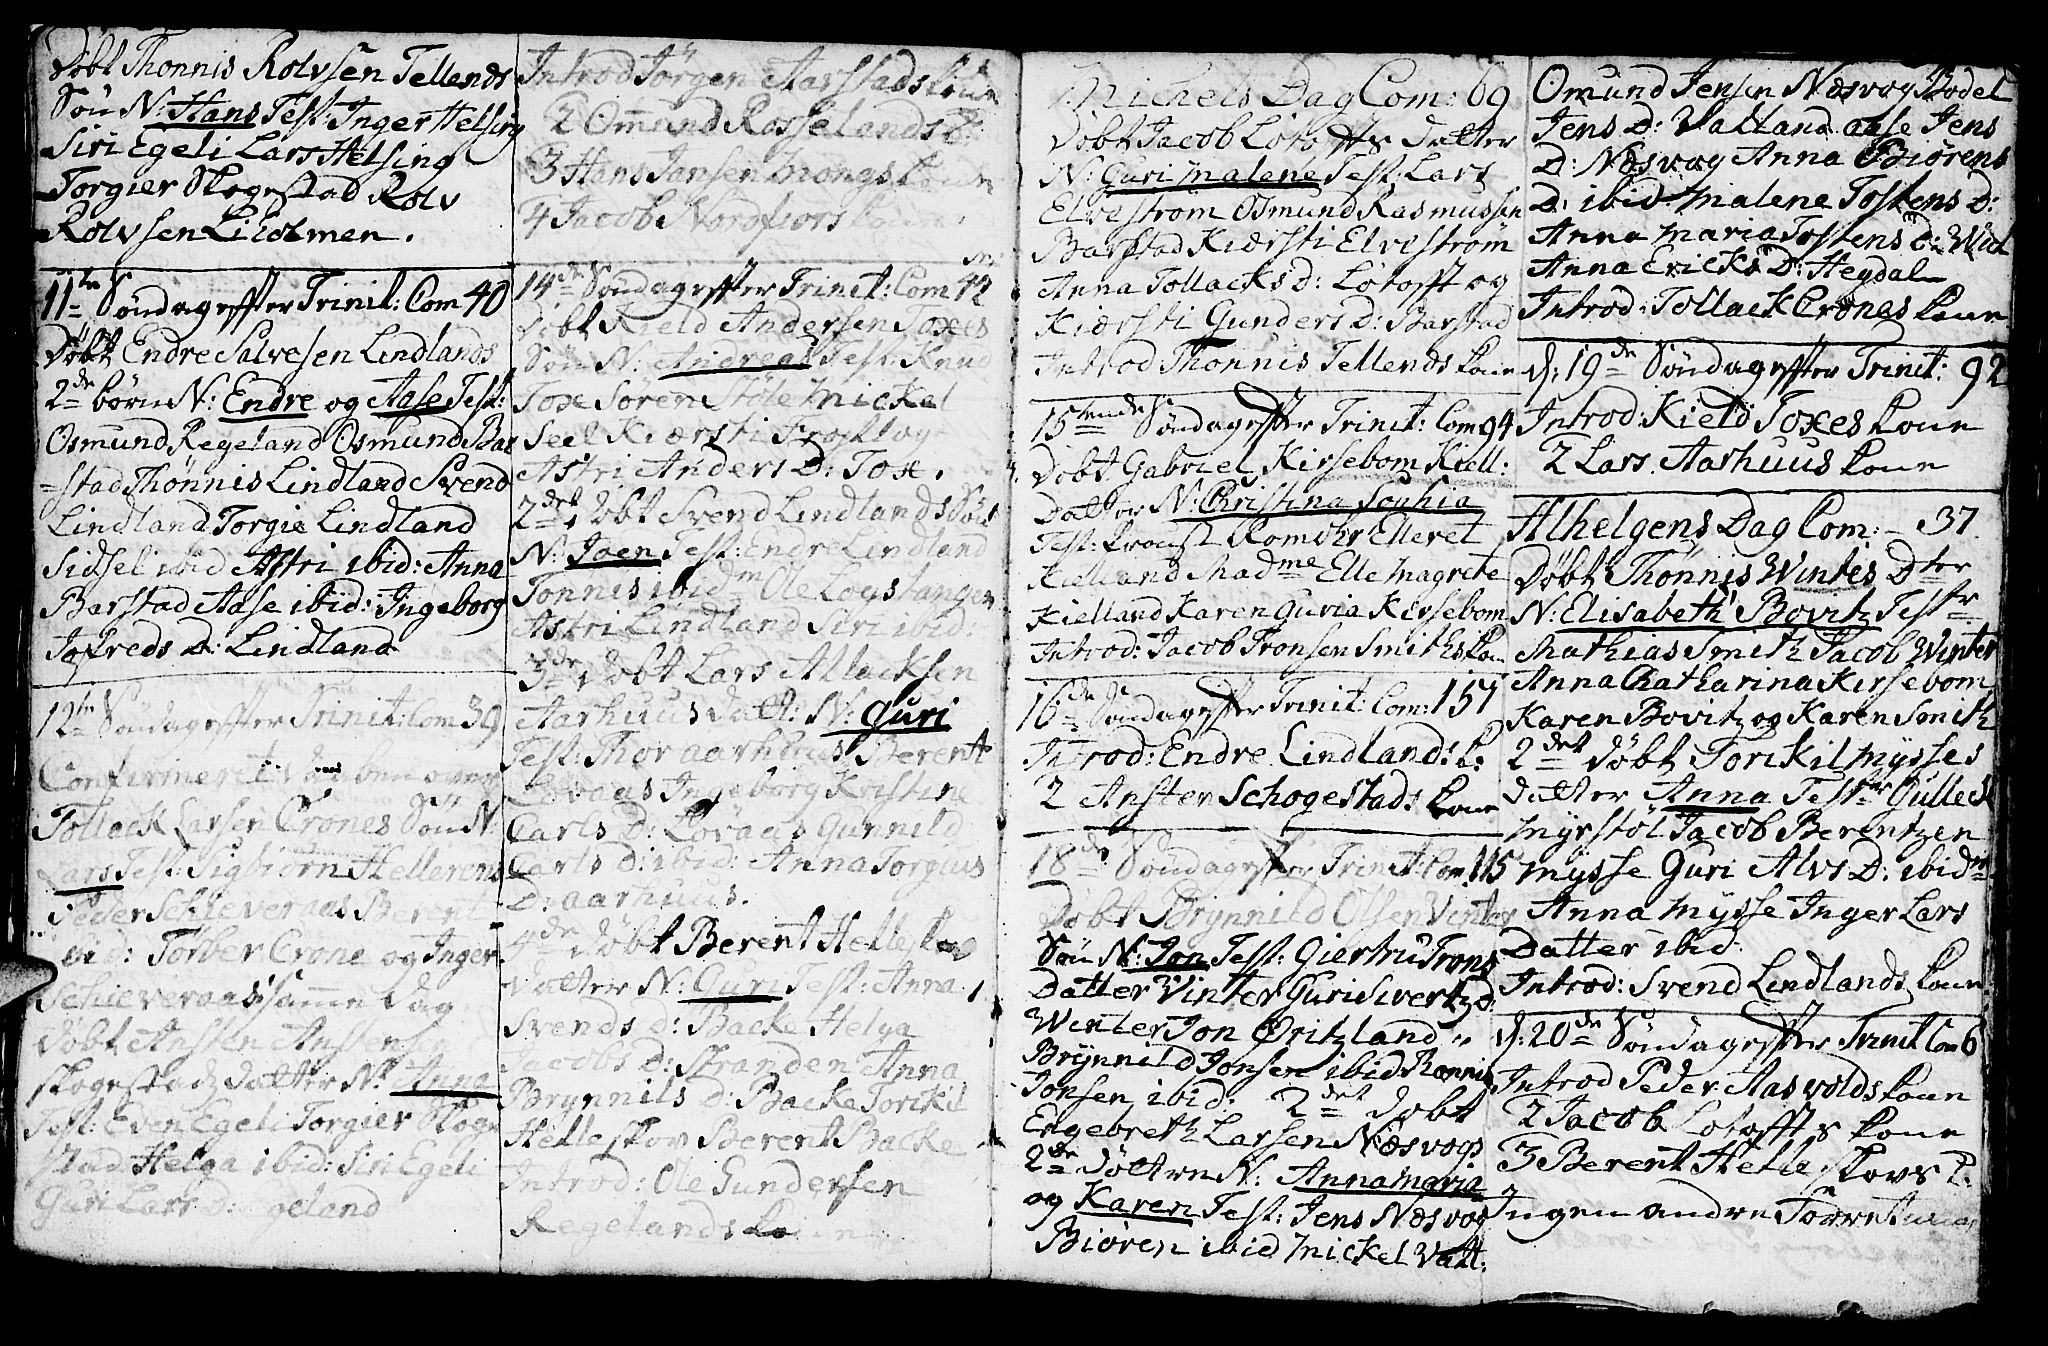 Døbt Thonnis Rolvsen Tellands
Søn N: Hans Test: Inger Helsing
Siri Egeli Lars Helsing
Torgier Skogestad Rolv
Rolvsen Liholmen.
11te Søndag effter Trinit: Com 40
Døbt Endre Salvesen Lindlands
2de børn N: Endre og Aase Test:
Osmund Regeland Osmund Bar
=stad Thönnis Lindland Svend
Lindland Torgie Lindland
Sidsel ibid Astri ibid: Anna
Barstad Aase ibid: Ingeborg
Jofreds D: Lindland
12te Søndag effter Trinit: Com 39
Confirmeret
Tollack Larsen Crones Søn N:
Lars Test: Sigbiørn Hellerens
Peder Schieveraas Berent
ibid: Torber Crone og Inger
Schieveraas samme Dag
Døbt Ansten Anstensen
Skogestads datter N: Anna
Test: Even Egeli Torgier Skoge
stad Helga ibid: Siri Egeli
Guri Lars D: Egeland
Introd Jørgen Aarstads kone
2 Omund Rosselands k:
3 Hans Jansen Mongs kone
4 Jacob Nordfiors kone
14de Søndag effter Trinit: Com 42
Døbt Kield Andersen Toxes
Søn N: Andreas Test: Knud
Toxe Søren Støle Mickel
Seel Kiersti Frostlog
Astri Anders D: Toxe.
2det Døbt Svend Lindlands Søn
N: Joen Test: Endre Lindland
Tonnis ibidm Ole Logstangen
Astri Lindland Siri ibid:
3de Døbt Lars Allacksen
Aarhuus Datt: N: Guri
Test: Thor aarhuus Berent
Lovaas Ingeborg Kristine
Carls D: Lovaas Gunnild
Carls D: ibid: Anna Torgius
D: aarhuus.
4de Døbt Berent Helleskov
Datter N: Guri Test: Anna
Svends D: Backe Helga
Jacobs D: Stranden Anna
Brynnils D: Backe Torikil
Helleskov Berent Backe
Introd: Ole Gundersen
Regelands kone
Michels Dag Com: 69
Døbt Jacob Lotoffts Datter
N: Guri Malene Test: Lars
Elvestrøm Osmund Rasmussen
Barstad Kiersti Elvestrøm
Anna Tollacks D: Lotofft og
Kiersti Gunders D: Barstad
Introd Thonnis Tellends kone
15tende Søndag effter Trinit: Com 94
Døbt Gabriel Kirsebom Kiell:
Datter N: Christina Sophia
Test: Elleret
Kielland Madme Elle Magrete
Kielland Karen Guria Kirsebom
Introd: Jacob Tronsen Smiths kone
16de Søndag effter Trinit: Com: 151
Introd: Endre Lindlands k:
2 Ansten Schogestads kone
18de Søndag effter Trinit: Com 115
Døbt Brynnild Olsen Vinter
Søn N: Jon Test: Giertru Trons
Datter Vinter Guri Sivertz D:
Winter Jon Øritzland
Brynnild Jonsen ibid Thonnis
Jonsen ibid: 2det Døbt
Engebreth Larsen Næsvogs
2de Døttre N: Anna Maria
og Karen Test: Jens Næsvog
Biøren ibid Mickel Vatl:
Omund Jensen Næsvog Bodel
Jens D: Vatland Aase Jens
D: Næsvog Anna Biørens
D: ibid Malene Tostens D:
Anna Maria Tostens D: Wid
Anna Ericks D: Heydal
Introd: Tollack Crones kone
d: 19de Søndag effter Trinit: 92
Introd: Kield Toxes kone
2 Lars Aarhuus kone
Alhelgens Dag Com: - 37
Døbt Thönnis Wintes Dter
N: Elisabeth Bovitz Testr
Mathias Smith Jacob Winter
Anna Chatharina Kirsebom
Karen Bovitz og Karen Smith
2det Døbt Torikil Mysses
Datter Anna Testr Gulleck
Myrstøl Jacob Berentzen
Mysse Guri Alvs D: ibidm
Anna Mysse Inger Lars
Datter ibid:
Introd: Svend Lindlands kone
d: 20de Søndag effter Trinit Com 6
Introd Peder Aasvolds kone
2 Jacob Lotoffts kone
3 Berent Helleskovs k:
Ingen andre Forretning